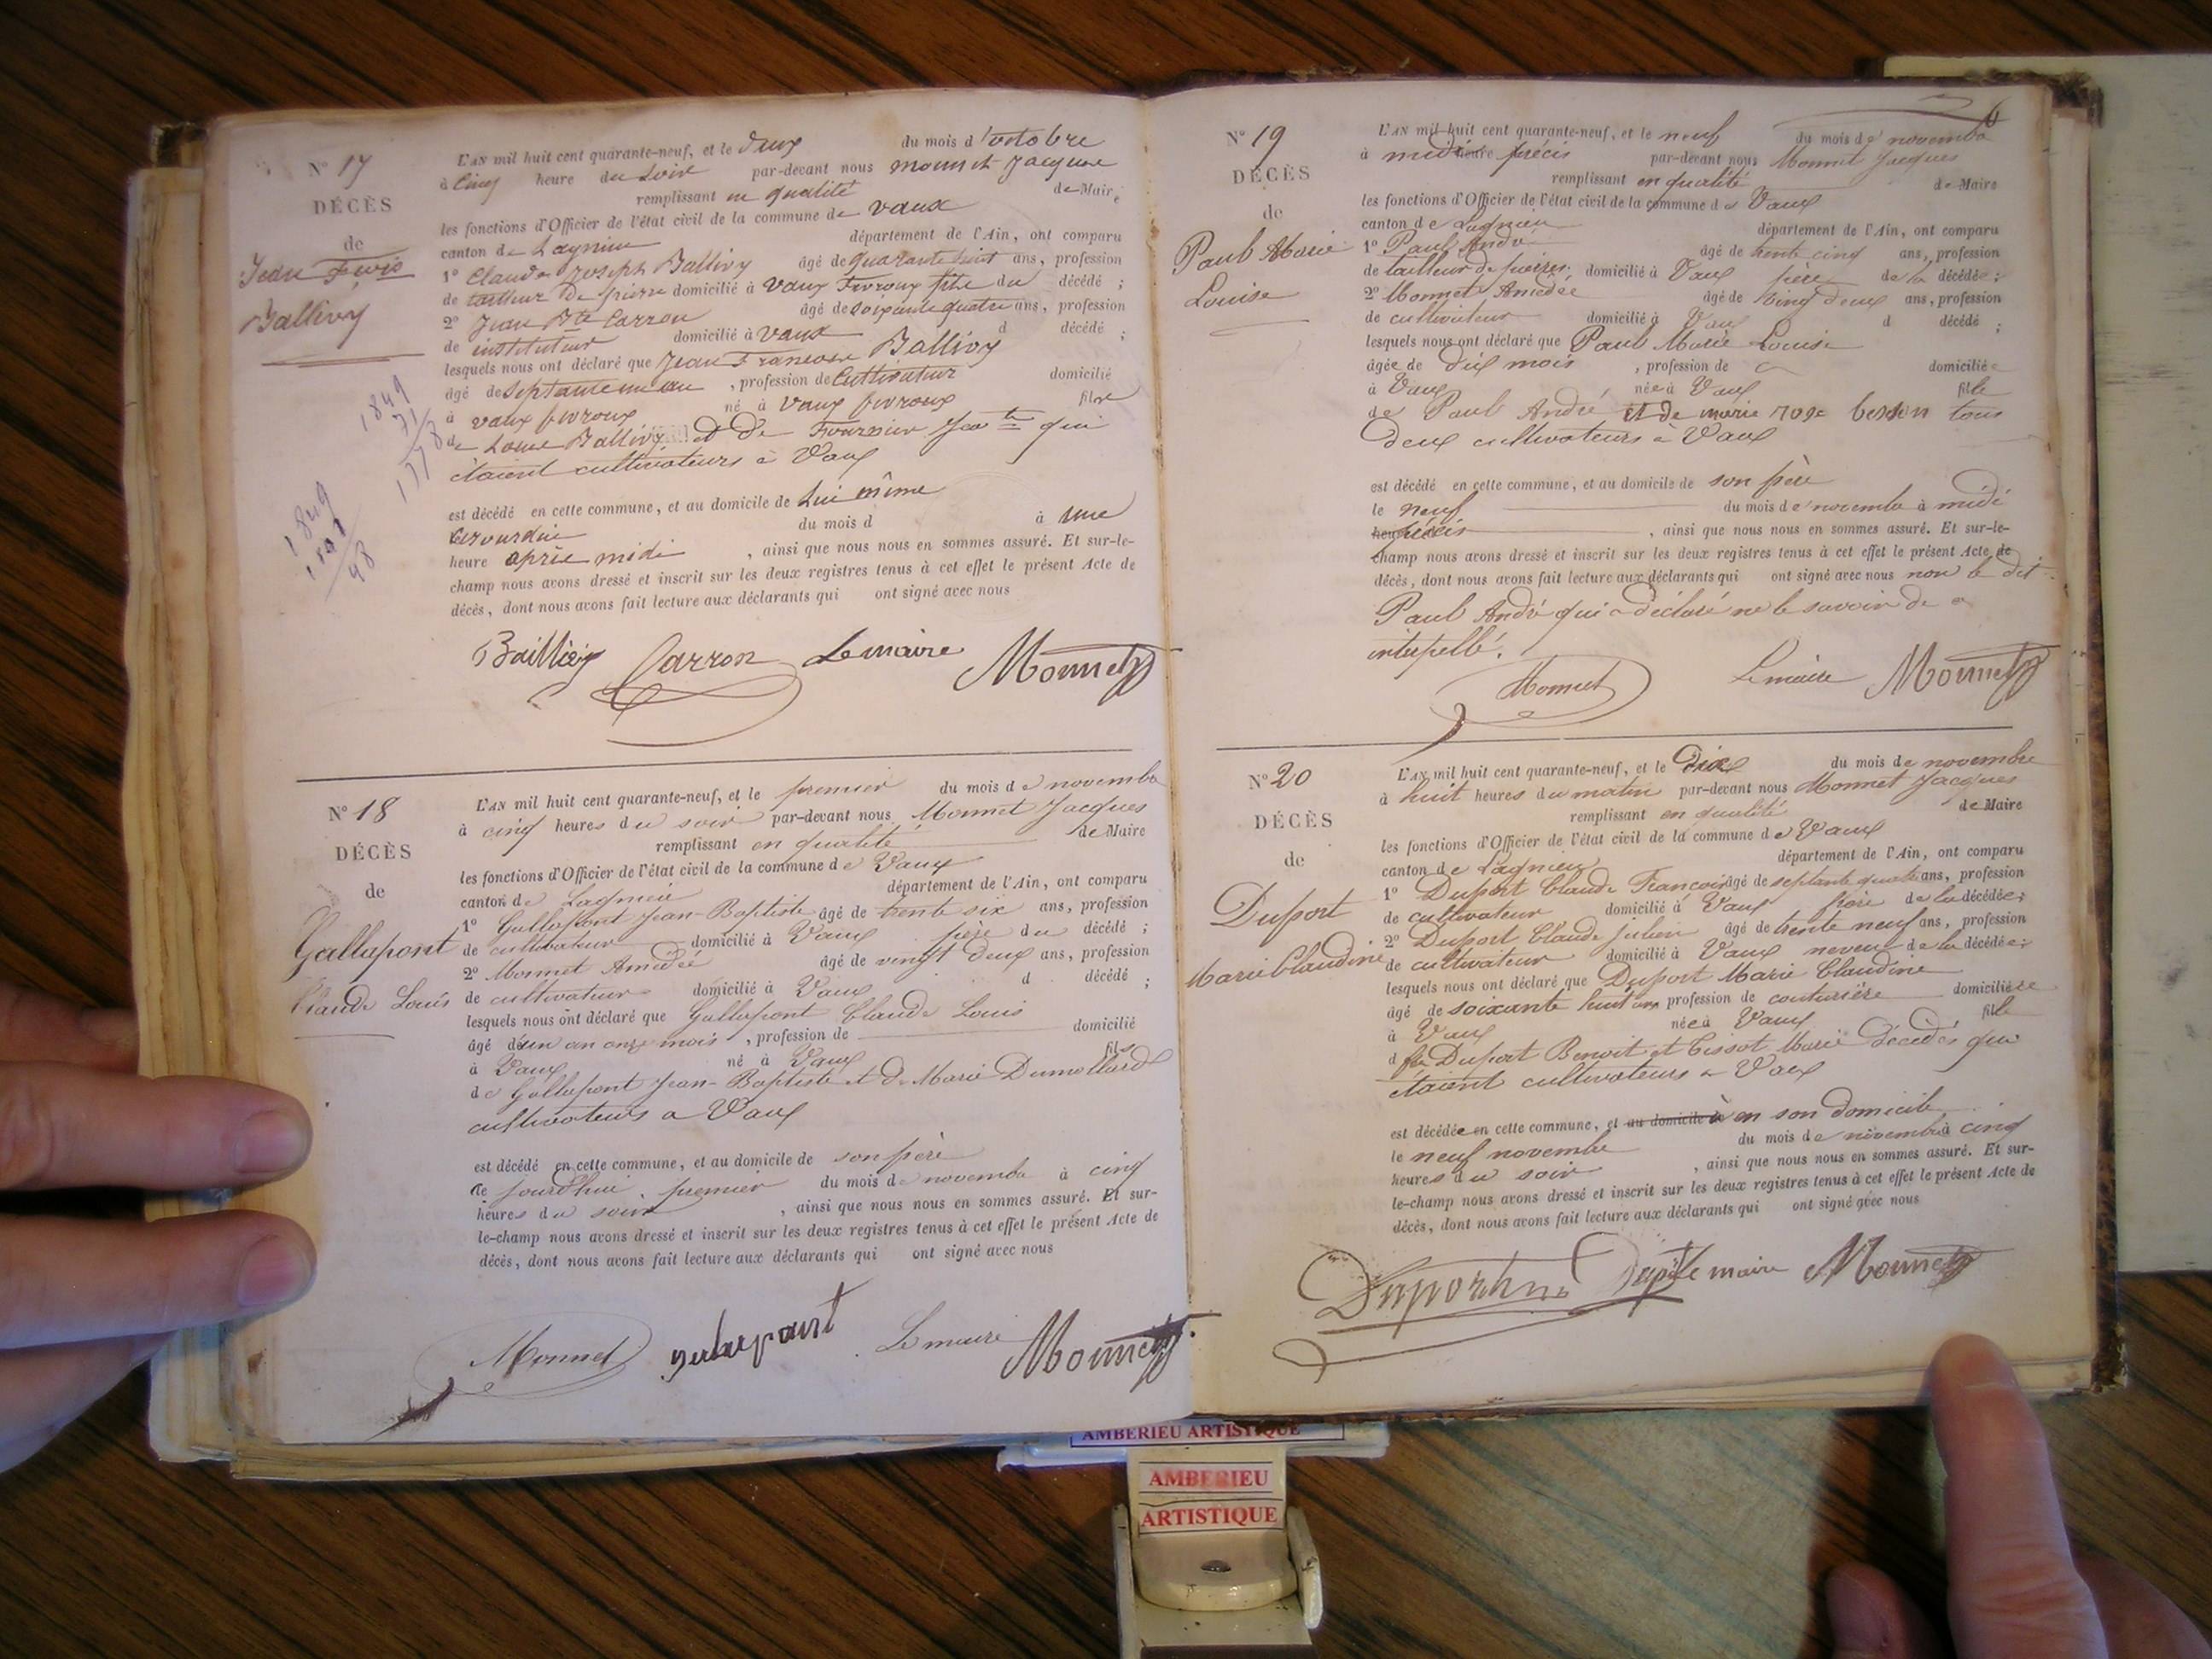 N° 17
DÉCÈS
de
Jean
Ballivy
L'AN mil huit cent quarante-neuf, et le deux du mois d'octobre
à cinq heure du soir par-devant nous monnet Jacques
remplissant en qualité de Maire
les fonctions d'Officier de l'état civil de la commune de vaux
canton de Lagnieu département de l'Ain, ont comparu
1° Claude Joseph Ballivy âgé de quarante ans, profession
de tailleur de pierre domicilié à vaux fevroux fils du décédé ;
2° Jean Bte Carron âgé de soixante quatre ans, profession
de instituteur domicilié à vaux d décédé ;
lesquels nous ont déclaré que Jean Francois Ballivy
âgé de septante un an , profession de Cultivateur domicilié
à vaux fevroux né à vaux fevroux fils
de Louis Ballivy et de Fournier qui
étaient cultivateurs à Vaux
est décédé en cette commune, et au domicile de Lui même
du mois d à une
heure après midi , ainsi que nous nous en sommes assuré. Et sur-le-
champ nous avons dressé et inscrit sur les deux registres tenus à cet effet le présent Acte de
décès, dont nous avons fait lecture aux déclarants qui ont signé avec nous
1849
71
1778
1849
1801
48
Baillivy Carron Le maire Monnet
N° 18
DÉCÈS
de
Gallapont
Claude Louis
L'AN mil huit cent quarante-neuf, et le premier du mois de novembre
à cinq heures du soir par-devant nous Monnet Jacques
remplissant en qualité de Maire
les fonctions d'Officier de l'état civil de la commune de Vaux
canton de Lagnieu département de l'Ain, ont comparu
1° Gallapont Jean-Baptiste âgé de trente six ans, profession
de cultivateur domicilié à Vaux père du décédé ;
2° Monnet Amédée âgé de vingt deux ans, profession
de cultivateur domicilié à Vaux d décédé ;
lesquels nous ont déclaré que Gallapont Claude Louis
âgé d'un an onze mois , profession de domicilié
à Vaux né à Vaux fils
de Gallapont Jean-Baptiste et de Marie Dumollard
cultivateurs a Vaux
est décédé en cette commune, et au domicile de son père
le jourd'hui premier du mois de novembre à cinq
heures du soir , ainsi que nous nous en sommes assuré. Et sur-
le-champ nous avons dressé et inscrit sur les deux registres tenus à cet effet le présent Acte de
décès, dont nous avons fait lecture aux déclarants qui ont signé avec nous
Monnet Le maire Monnet
6
N° 19
DÉCÈS
de
Paul Marie
Louise
L'AN mil huit cent quarante-neuf, et le neuf du mois de novembre
à midi heure précis par-devant nous Monnet Jacques
remplissant en qualité de Maire
les fonctions d'Officier de l'état civil de la commune de Vaux
canton de Lagnieu département de l'Ain, ont comparu
1° Paul André âgé de trente cinq ans, profession
de tailleur de pierres domicilié à Vaux père de la décédée ;
2° Monnet Amédée âgé de vingt deux ans, profession
de cultivateur domicilié à Vaux d décédé ;
lesquels nous ont déclaré que Paul Marie Louise
âgée de dix mois , profession de domiciliée
à Vaux née à Vaux fille
de Paul André et de marie rose besson tous
deux cultivateurs à Vaux
est décédé en cette commune, et au domicile de son père
le neuf du mois de novembre à midi
heure précis , ainsi que nous nous en sommes assuré. Et sur-le-
champ nous avons dressé et inscrit sur les deux registres tenus à cet effet le présent Acte de
décès, dont nous avons fait lecture aux déclarants qui ont signé avec nous non le dit
Paul André qui a déclaré ne le savoir de ce
interpellé.
Monnet Le maire Monnet
N° 20
DÉCÈS
de
Duport
Marie Claudine
L'AN mil huit cent quarante-neuf, et le dix du mois de novembre
à huit heures du matin par-devant nous Monnet Jacques
remplissant en qualité de Maire
les fonctions d'Officier de l'état civil de la commune de Vaux
canton de Lagnieu département de l'Ain, ont comparu
1° Duport Claude François âgé de septante quatre ans, profession
de cultivateur domicilié à Vaux frère de la décédée ;
2° Duport Claude Julien âgé de trente neuf ans, profession
de cultivateur domicilié à Vaux neveu de la décédée ;
lesquels nous ont déclaré que Duport Marie Claudine
âgé de soixante huit ans profession de couturière domiciliée
à Vaux née à Vaux fille
d feu Duport Benoit et Tissot Marie décédés qui
étaient cultivateurs a Vaux
est décédée en cette commune, et au domicile de en son domicile
le neuf novembre du mois de novembre à cinq
heures du soir , ainsi que nous nous en sommes assuré. Et sur-
le-champ nous avons dressé et inscrit sur les deux registres tenus à cet effet le présent Acte de
décès, dont nous avons fait lecture aux déclarants qui ont signé avec nous
Le maire Monnet
AMBERIEU ARTISTIQUE
AMBERIEU
ARTISTIQUE